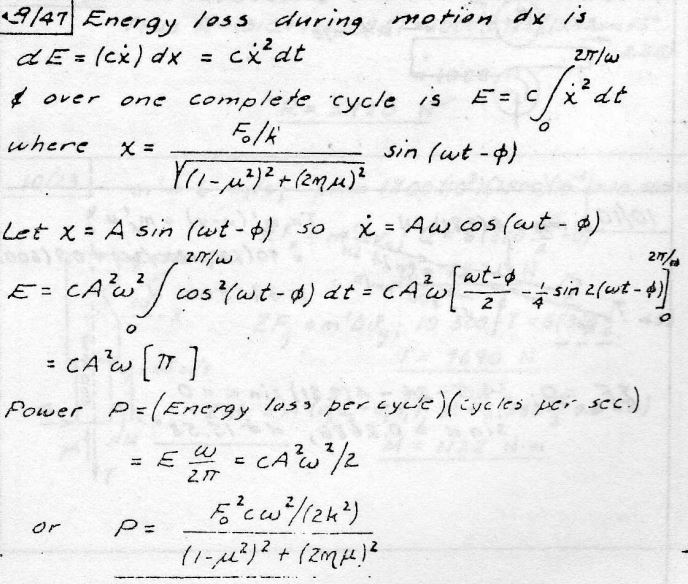 9/47 Energy loss during motion dx is
dE = (cẋ) dx = cẋ² dt
& over one complete cycle is E = c ∫₀^{2π/ω} ẋ² dt
where x = (F₀/k) / √((1-μ²)² + (2ημ)²) sin (ωt - φ)
Let x = A sin (ωt - φ) so ẋ = Aω cos (ωt - φ)
E = cA²ω² ∫₀^{2π/ω} cos² (ωt - φ) dt = cA²ω [(ωt - φ)/2 - 1/4 sin 2(ωt - φ)]₀^{2π/ω}
= cA²ω [π]
Power P = (Energy loss per cycle)(cycles per sec.)
= E ω/2π = cA²ω²/2
or P = (F₀² cω²/(2k²)) / ((1-μ²)² + (2ημ)²)